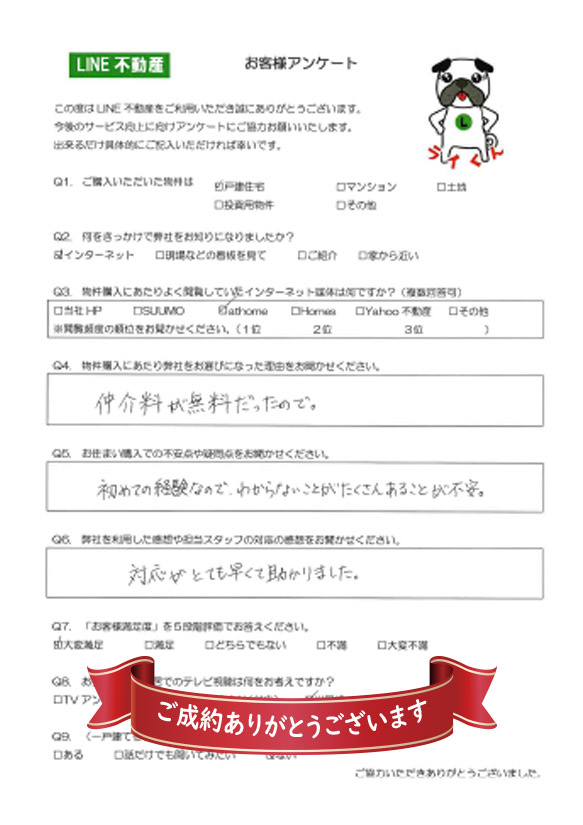 LINE 不動産
お客様アンケート
この度は LINE 不動産をご利用いただき誠にありがとうございます。
今後のサービス向上に向けアンケートにご協力お願いいたします。
出来るだけ具体的にご記入いただければ幸いです。
L
ライくん
Q1. ご購入いただいた物件は ☑戸建住宅 □マンション □土地
□投資用物件 □その他
Q2. 何をきっかけで弊社をお知りになりましたか？
☑インターネット □現場などの看板を見て □ご紹介 □家から近い
Q3. 物件購入にあたりよく閲覧していたインターネット媒体は何ですか？（複数回答可）
□当社 HP □SUUMO ☑athome □Homes □Yahoo 不動産 □その他
※閲覧頻度の順位をお聞かせください。（1位 2位 3位 ）
Q4. 物件購入にあたり弊社をお選びになった理由をお聞かせください。
仲介料が無料だったので。
Q5. お住まい購入での不安点や疑問点をお聞かせください。
初めての経験なので、わからないことがたくさんあることが不安。
Q6. 弊社を利用した感想や担当スタッフの対応の感想をお聞かせください。
対応がとても早くて助かりました。
Q7. 「お客様満足度」を5段階評価でお答えください。
☑大変満足 □満足 □どちらでもない □不満 □大変不満
Q8. お 居でのテレビ視聴は何をお考えですか？
□TV アン
ご成約ありがとうございます
Q9. （一戸建て
□ある □話だけでも聞いてみたい ☑ない
ご協力いただきありがとうございました。